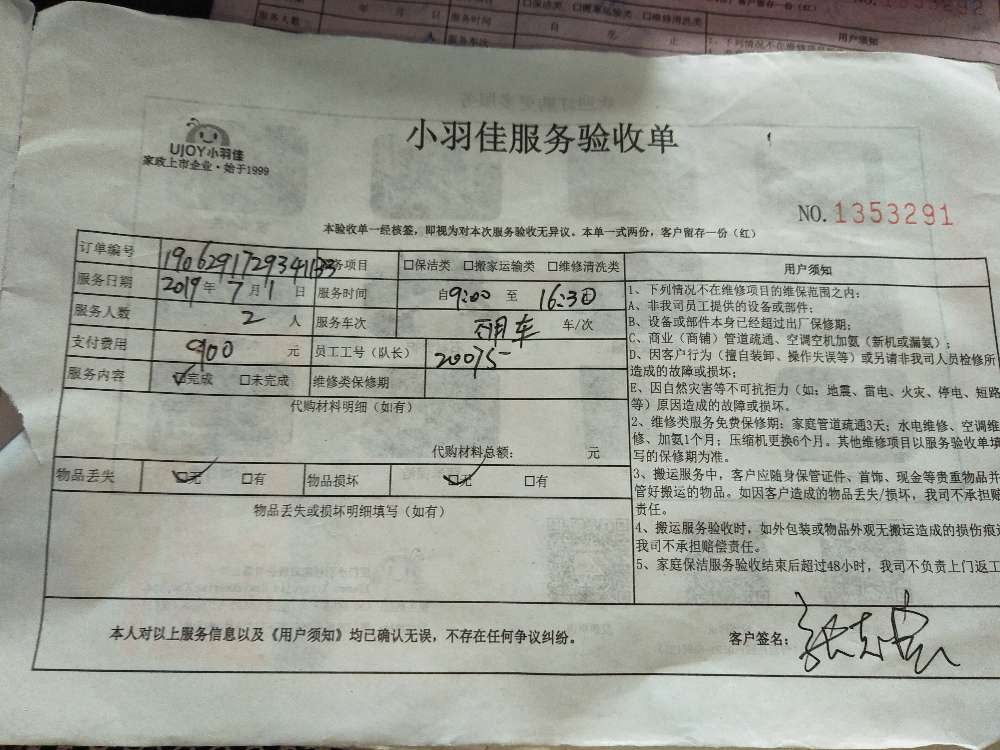 小羽佳服务验收单
UJOY小羽佳
家政上市企业·始于1999
NO.1353291
本验收单一经核签，即视为对本次服务验收无异议。本单一式两份，客户留存一份（红）
订单编号 服务项目 □保洁类 □搬家运输类 □维修清洗类
服务日期 2019年7月1日 服务时间 自9:00至16:30
服务人数 2人 服务车次 车/次
支付费用 900元 员工工号（队长） 20075
服务内容 ☑完成 □未完成 维修类保修期
代购材料明细（如有）
代购材料总额： 元
物品丢失 ☑无 □有 物品损坏 ☑无 □有
物品丢失或损坏明细填写（如有）
用户须知
1、下列情况不在维修项目的维保范围之内：
A、非我司员工提供的设备或部件；
B、设备或部件本身已经超过出厂保修期；
C、商业（商铺）管道疏通、空调空机加氨（新机或漏氨）；
D、因客户行为（擅自装卸、操作失误等）或另请非我司人员检修所
造成的故障或损坏；
E、因自然灾害等不可抗拒力（如：地震、雷电、火灾、停电、短路
等）原因造成的故障或损坏。
2、维修类服务免费保修期：家庭管道疏通3天；水电维修、空调维
修、加氨1个月；压缩机更换6个月。其他维修项目以服务验收单填
写的保修期为准。
3、搬运服务中，客户应随身保管证件、首饰、现金等贵重物品并
管好搬运的物品。如因客户造成的物品丢失/损坏，我司不承担赔
责任。
4、搬运服务验收时，如外包装或物品外观无搬运造成的损伤痕
我司不承担赔偿责任。
5、家庭保洁服务验收结束后超过48小时，我司不负责上门返工
本人对以上服务信息以及《用户须知》均已确认无误，不存在任何争议纠纷。
客户签名：